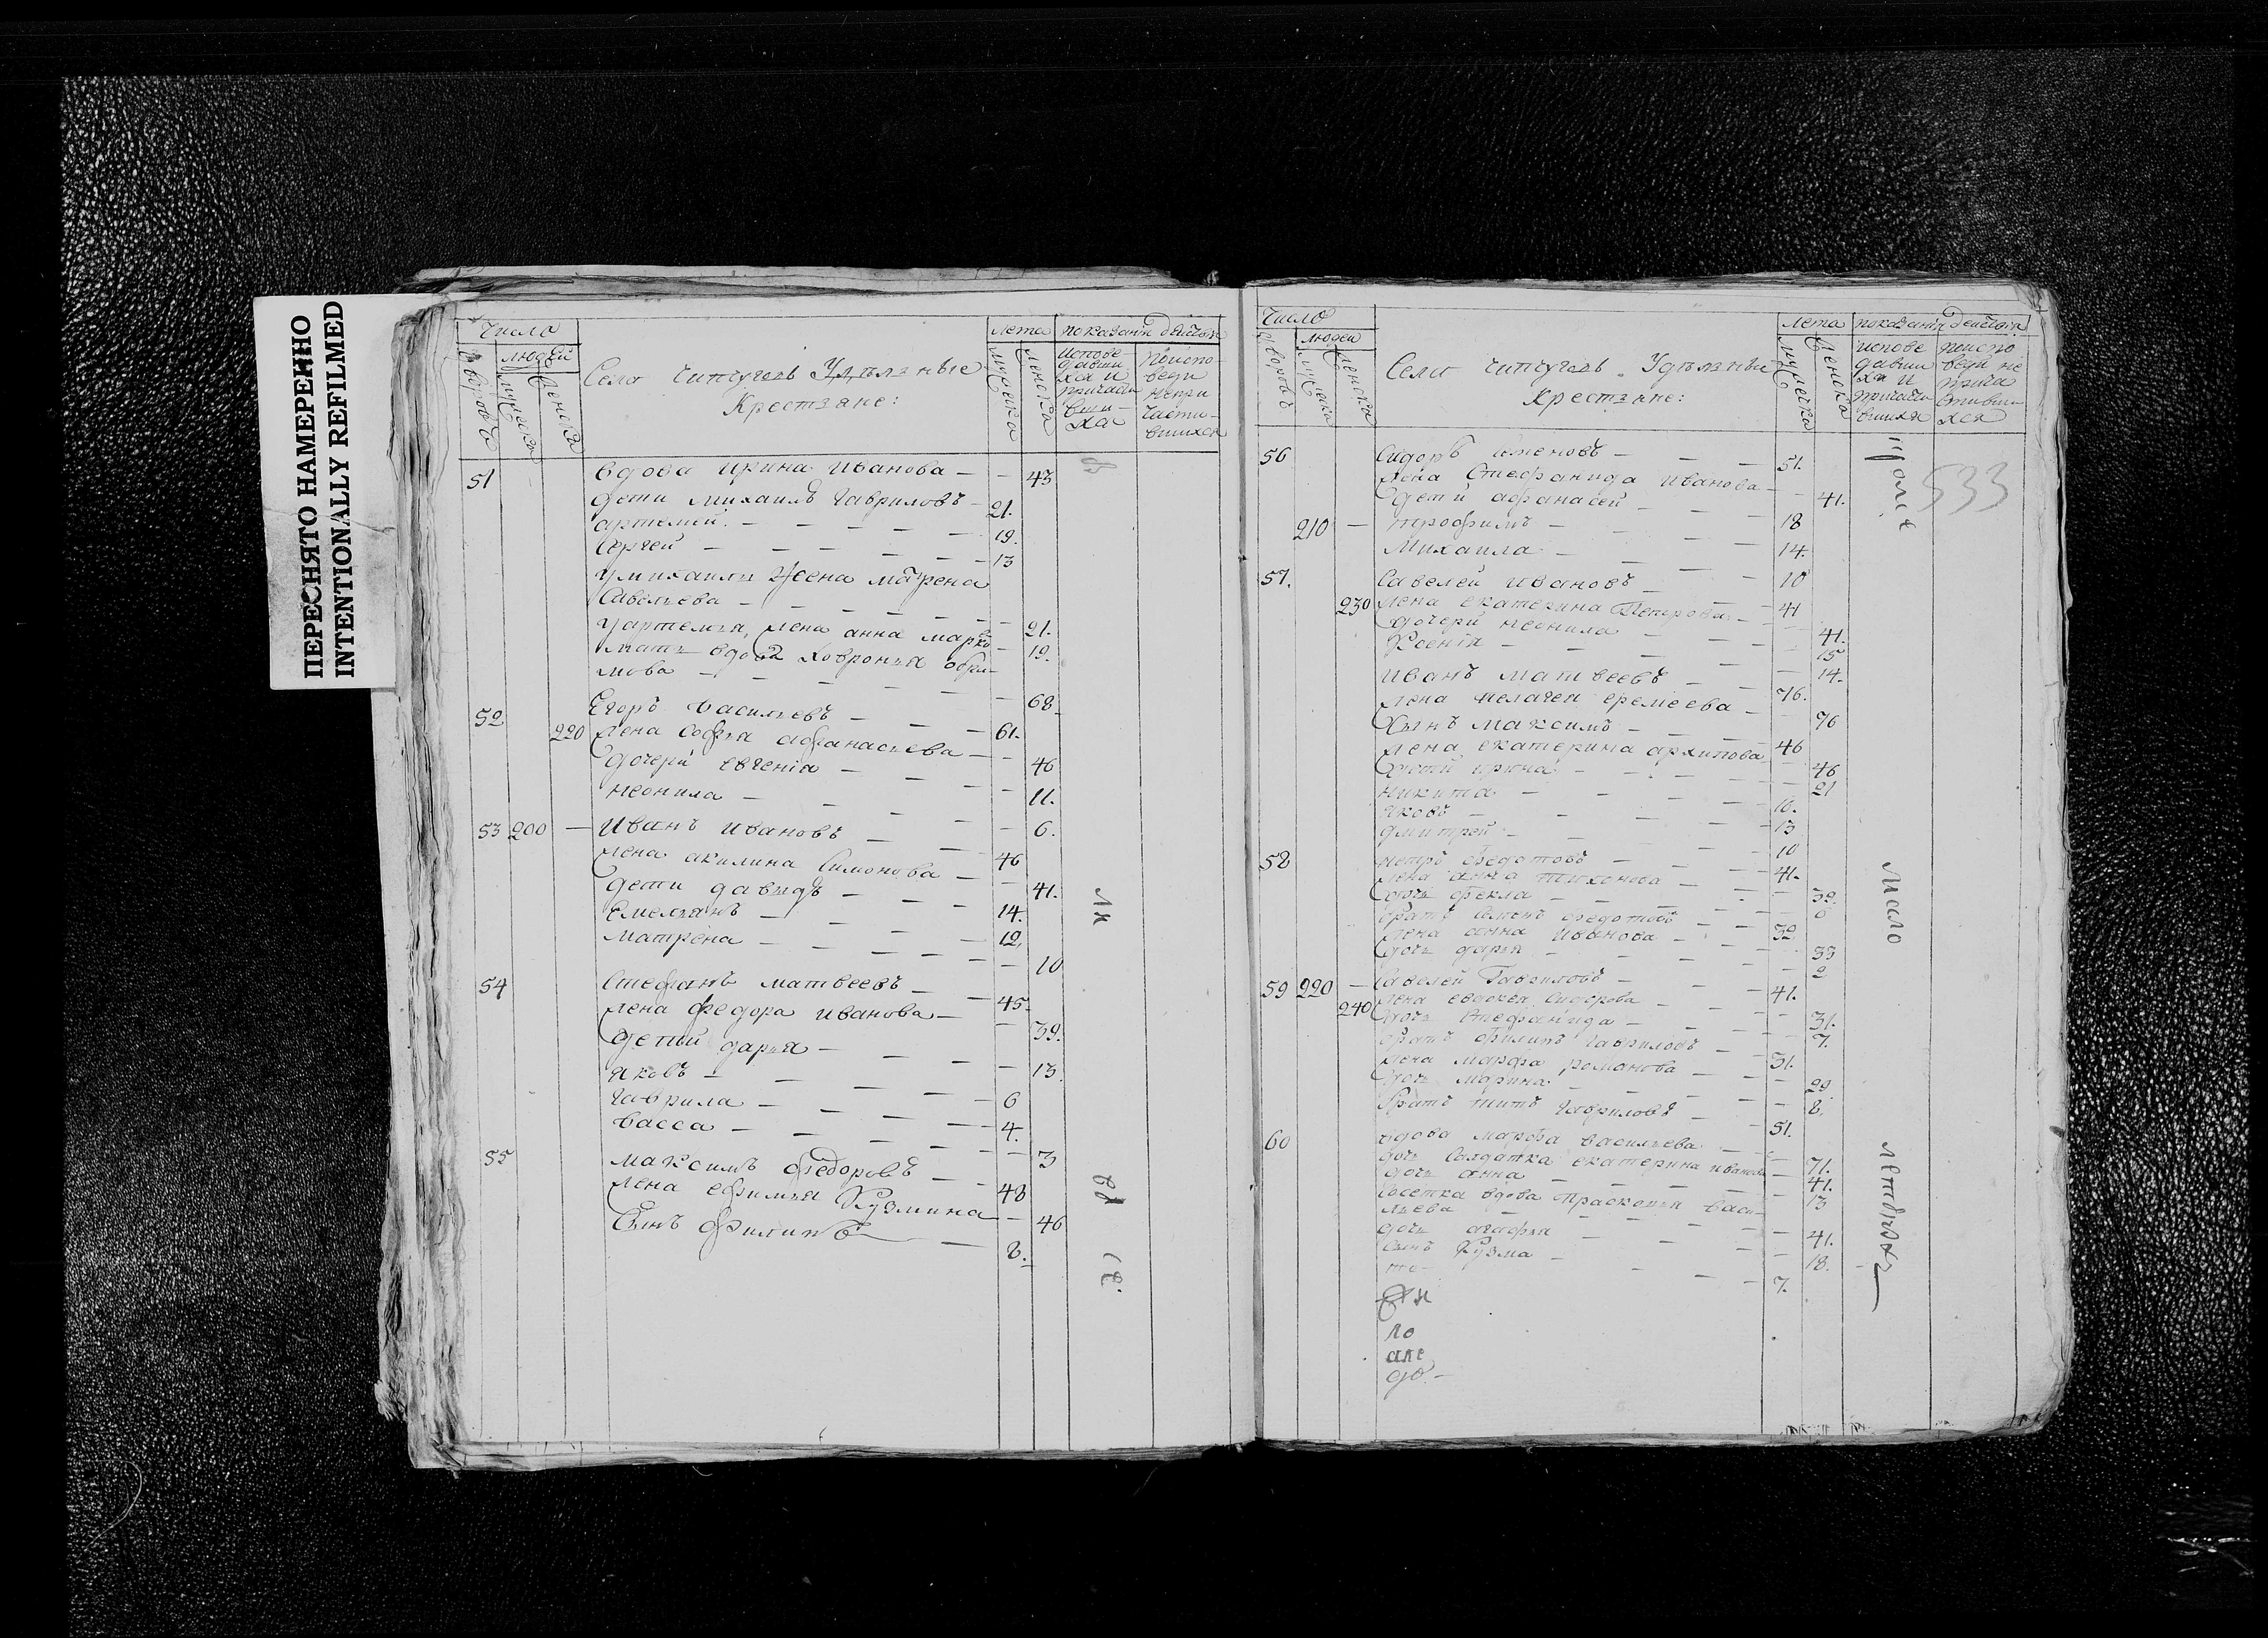 ПЕРЕСНЯТО НАМЕРЕННО
INTENTIONALLY REFILMED
Число
людей
дворовъ
мужеска
женска
Села Чипчугезъ Удѣлзные
Крестзяне:
лета
мужеска
женска
показани дейстъ
испове
давши
хся и
причасти
вши
хся
по испо-
веди
непри
части-
вшихся
51 вдова Ирина Иванова — 43
дети Михаилъ Гавриловъ — 21.
артемий. — 19.
Сергей — 13
у михаилы жена матрена
Савельева — 21.
у артемья, жена анна марко — 19.
мать вдова ховронья
мова — 68
52 Егоръ Васильевъ — 61.
220 жена Софья афанасьева — 46
дочери евгенія — 11.
неонила — 6.
53 200 — Иванъ Ивановъ — 46
жена акилина Симонова — 41.
дети давыдъ — 14.
Емельянъ — 12.
матрена — 10
54 Стефанъ матвеевъ — 45.
жена федора иванова — 39.
детий дарья — 13.
яковъ — 6
гаврила — 4.
васса — 3
55 максимъ федоровъ — 48
жена ефимья Кузмина — 46
Сынъ филипъ — 8.
Число
людей
дворовъ
мужеска
женска
Села Чипчугезъ Удѣлзные
Крестзяне:
лета
мужеска
женска
показани действія
испове
давши
хся и
причасти
вшихся
по испо
веди не
прича
стивши
хся
533
56 Сидоръ семеновъ — 51.
жена Стефанида иванова — 41.
дети афанасей — 18
210 — трофимъ — 14.
михаила — 10
57. Савелей ивановъ — 41
230 жена екатерина Петрова — 41.
дочери неонила — 15
Ксенія — 14.
иванъ матвеевъ — 76.
жена пелагея еремеева — 76
Сынъ максимъ — 46
жена екатерина архипова 46
детий ирина — 21
никита — 16.
яковъ — 13
дмитрей — 10
58 петръ федотовъ — 41.
жена анна тихонова — 39.
дочь фекла — 8
братъ семенъ федотовъ — 32
жена анна иванова — 33
дочь дарья — 2
59 220 — Савелей Гавриловъ — 41.
240 жена евдокея Сидорова — 31.
дочь Стефанида — 7.
братъ филипъ гавриловъ — 31.
жена марфа романова — 29.
дочь марина — 8.
братъ титъ гавриловъ — 51.
60 вдова марфа васильева — 71.
дочь Солдатка екатерина иванова 41.
дочь анна — 13
Соседка вдова прасковья васи-
льева — 41.
дочь агафья — 18.
сынъ Кузма — 7.
то
ло
але
до —